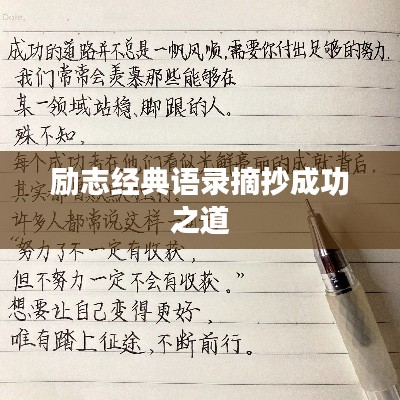 Date.
成功的道路并不总是一帆风顺,需要你付出足够的努力.
我们常常会羡慕那些能够在
某一领域站稳、脚跟的人。
殊不知,
每个成功者在他们看似光鲜亮丽的成就背后,
励志经典语录摘抄成功
之道
其实都
许多人都常说这样一
“努力了不一定有收获,
但不努力一定不会有收获。”
想要让自己变得更好,
唯有踏上征途,不断前行。